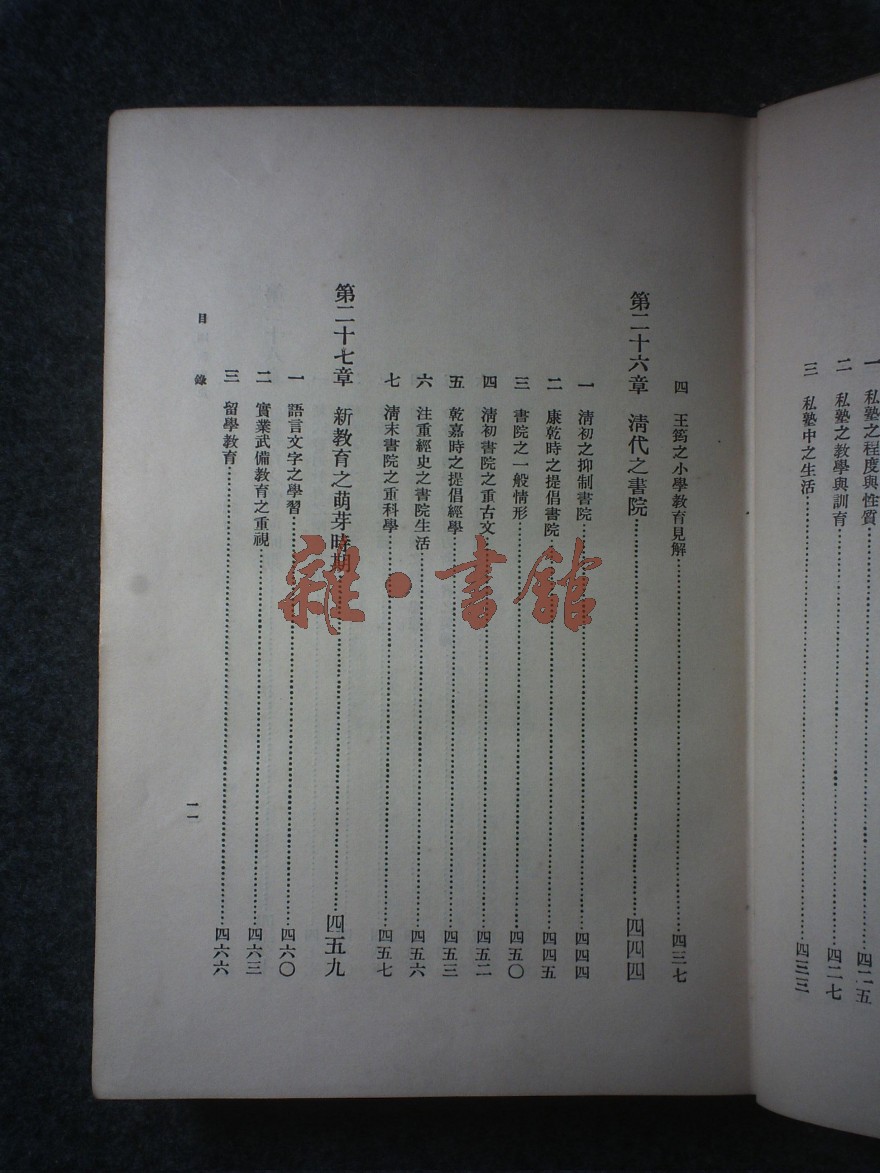 一 私塾之程度與性質……四二五
二 私塾之教學與訓育……四二七
三 私塾中之生活……四三三
四 王筠之小學教育見解……四三七
第二十六章 清代之書院……四四四
一 清初之抑制書院……四四四
二 康乾時之提倡書院……四四五
三 書院之一般情形……四五〇
四 清初書院之重古文……四五二
五 乾嘉時之提倡經學……四五三
六 注重經史之書院生活……四五六
七 清末書院之重科學……四五七
第二十七章 新教育之萌芽時期……四五九
一 語言文字之學習……四六〇
二 實業武備教育之重視……四六三
三 留學教育……四六六
目錄
一一
雜·書館